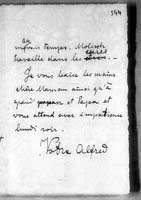 344
mauvais temps. Molinot
travaille dans les
Je vous baise les mains
chère Maman ainsi qu'à
grand et Papa et
vous attend avec impatience
lundi soir.
Votre Alfred